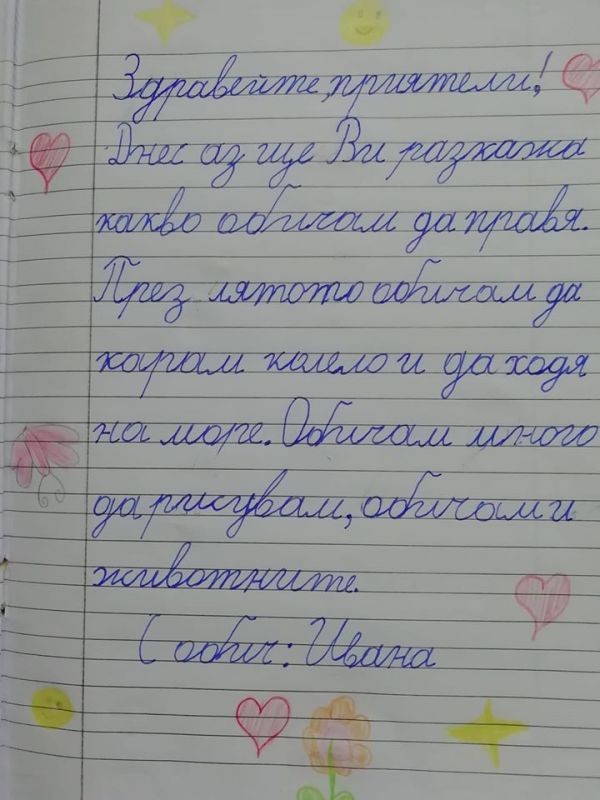 Здравейте, приятели!
Днес аз ще Ви разкажа
какво обичам да правя.
През лятото обичам да
карам колело и да ходя
на море. Обичам много
да рисувам, обичам и
животните.
С обич: Ивана